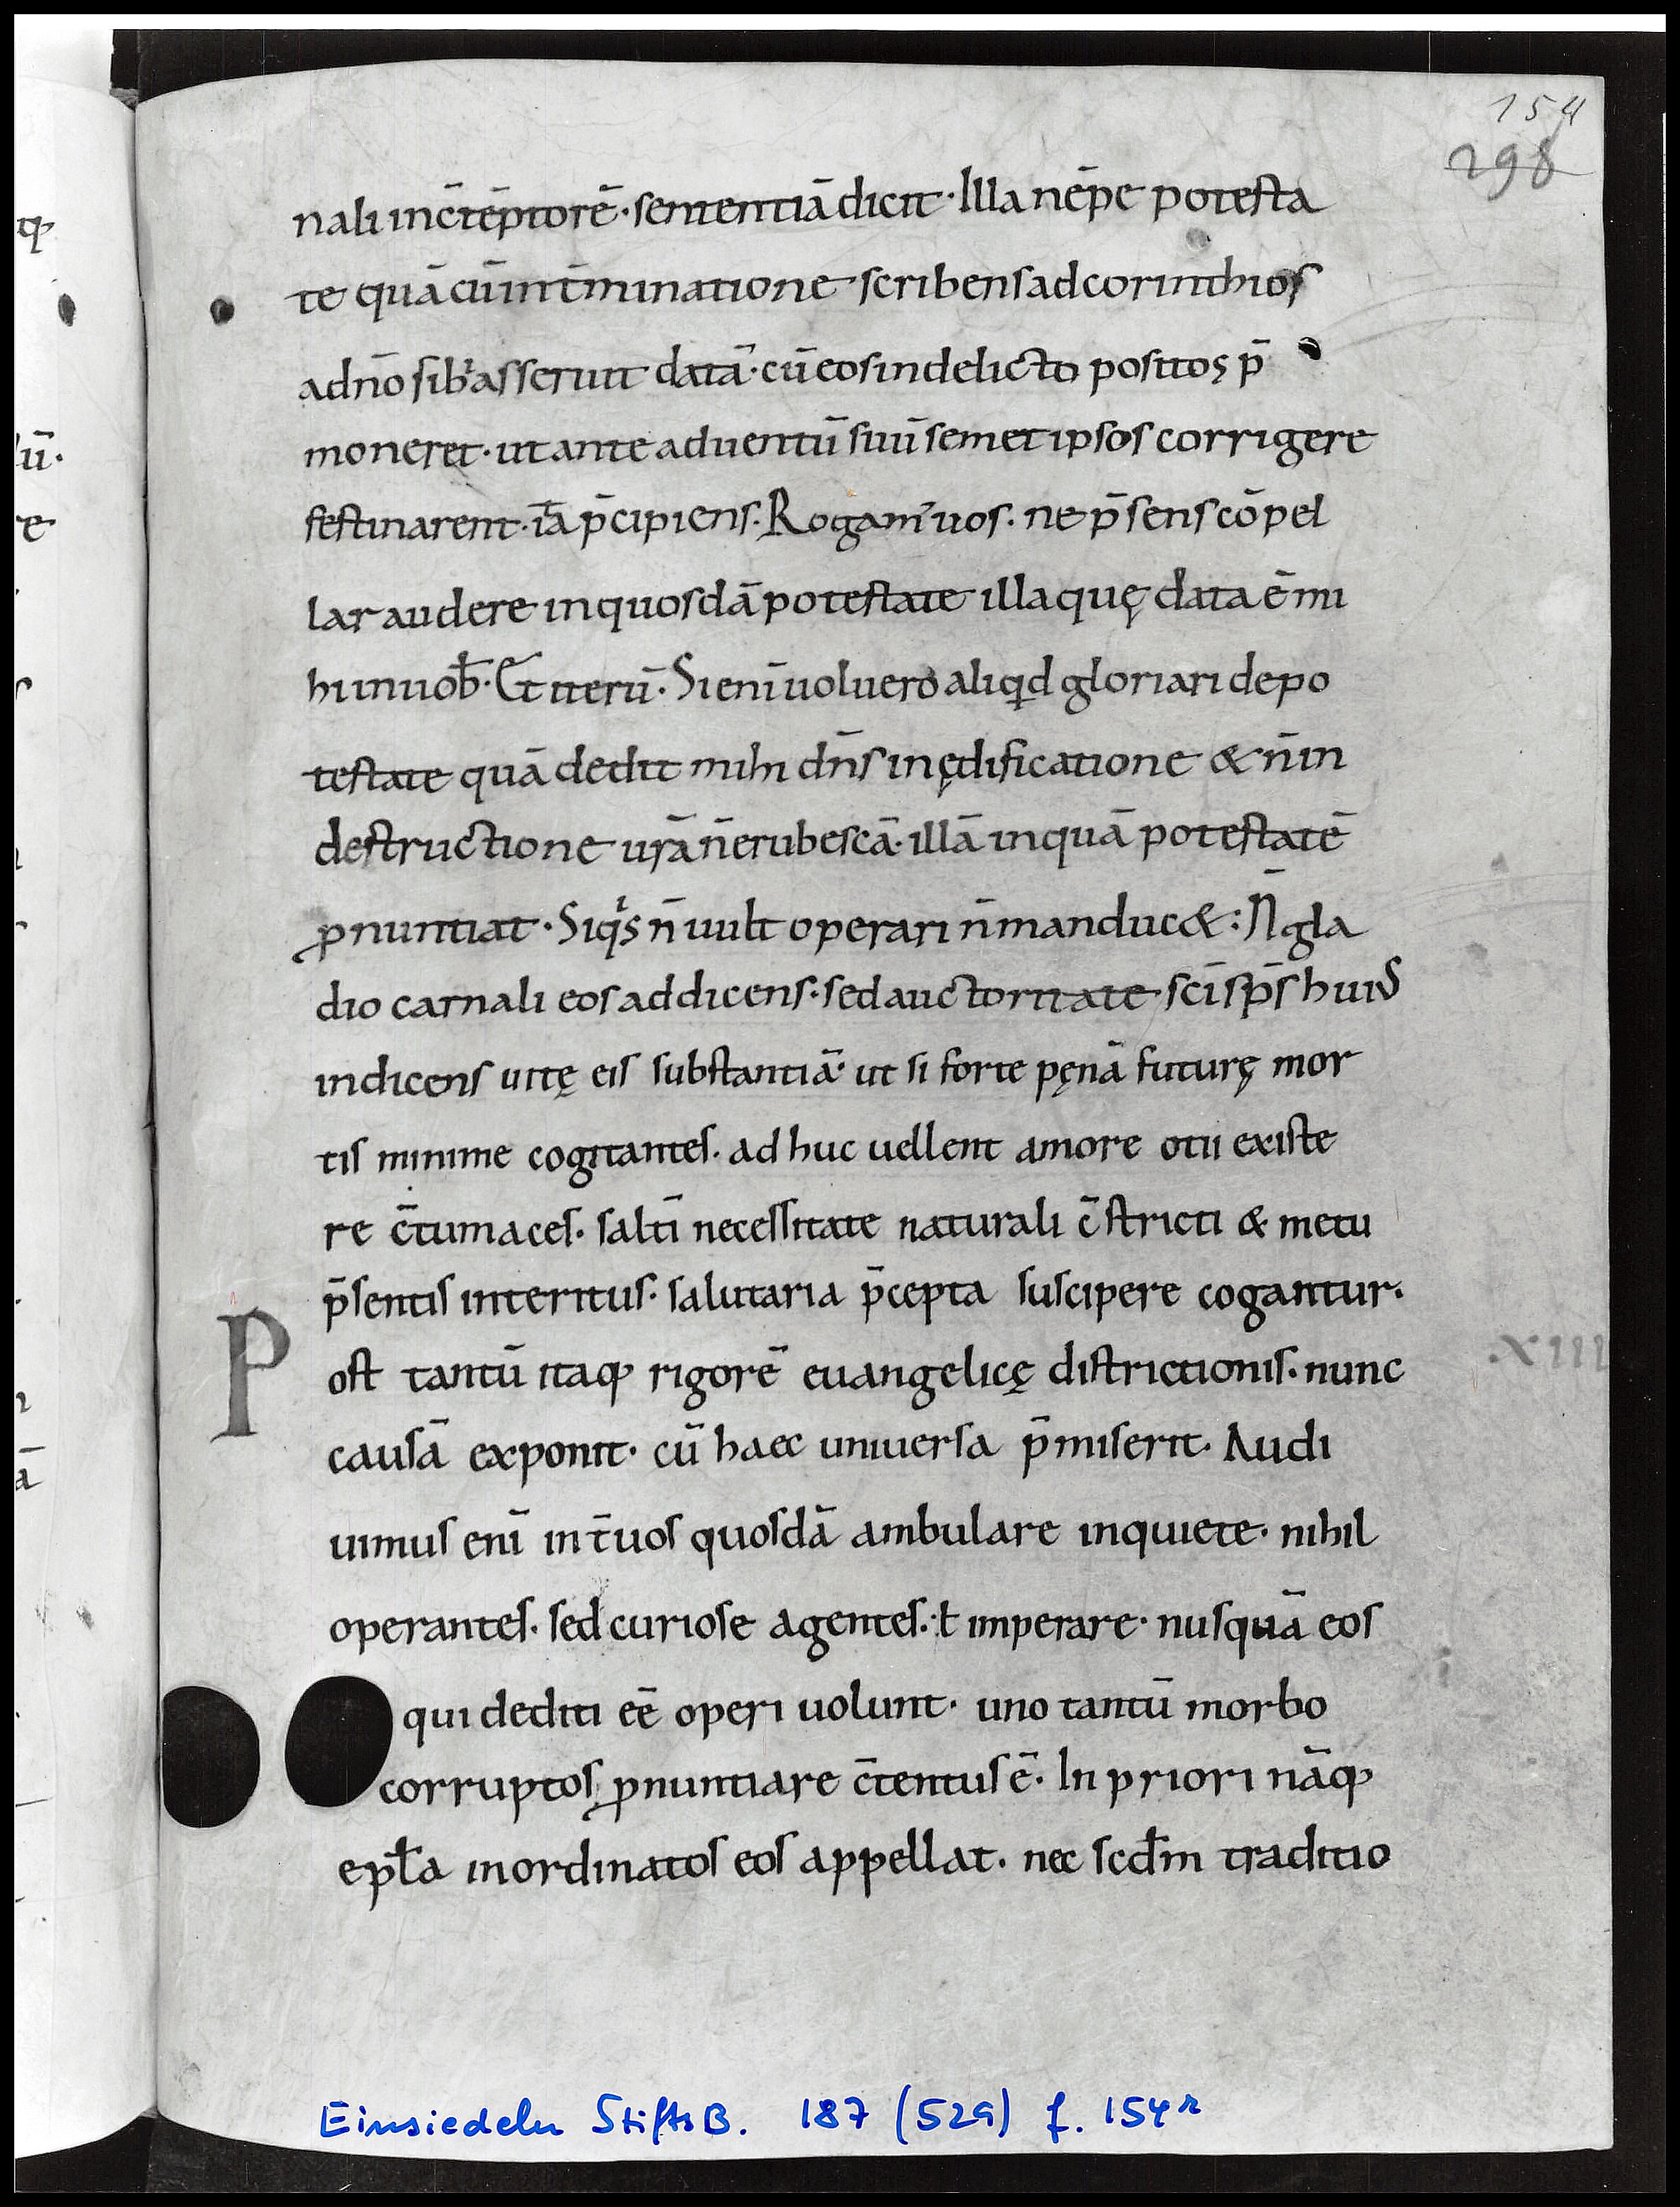 154
298
nali inc̄tēptorē · sententiā dicit · Illa nēpe potesta
te quā cū int̄minatione scribens ad corinthios
a dn̄o sibi asserunt datā · cū eos in delicto positos p̄
moneret · ut ante aduentū suū semet ipsos corrigere
festinarent · ita p̄cipiens. Rogam' uos · ne p̄sens cōpel
lar audere in quosdā potestate illa quę data ē mi
hi in uob̄ · Et iterū · Si enī uoluero aliqd gloriari de po
testate quā dedit mihi dn̄s in ędificatione & n̄ in
destructione urā n̄ erubescā · illā inquā potestatē
ꝓnuntiat · Siqs n̄ uult operari n̄ manduc& : N̄ gla
dio carnali eos addicens · sed auctoritate sc̄i sp̄s huiꝰ
indicens uitę eis substantiā · ut si forte pęnā futurę mor
tis minime cogitantes · ad huc uellent amore otii existe
re c̄tumaces · saltī necessitate naturali c̄stricti & metu
p̄sentis interitus · salutaria p̄cepta suscipere cogantur ·
Post tantū itaq; rigorē euangelicę districtionis · nunc
·XIII
causā exponit · cū haec uniuersa p̄miserit · Audi
uimus enī int̄ uos quosdā ambulare inquiete · nihil
operantes · sed curiose agentes · ł imperare · nusquā eos
qui dediti eē operi uolunt · uno tantū morbo
corruptos ꝓnuntiare c̄tentus ē · In priori nāq;
epł̄a inordinatos eos appellat · nec scd̄m traditio
Einsiedeln StiftsB. 187 (529) f. 154r